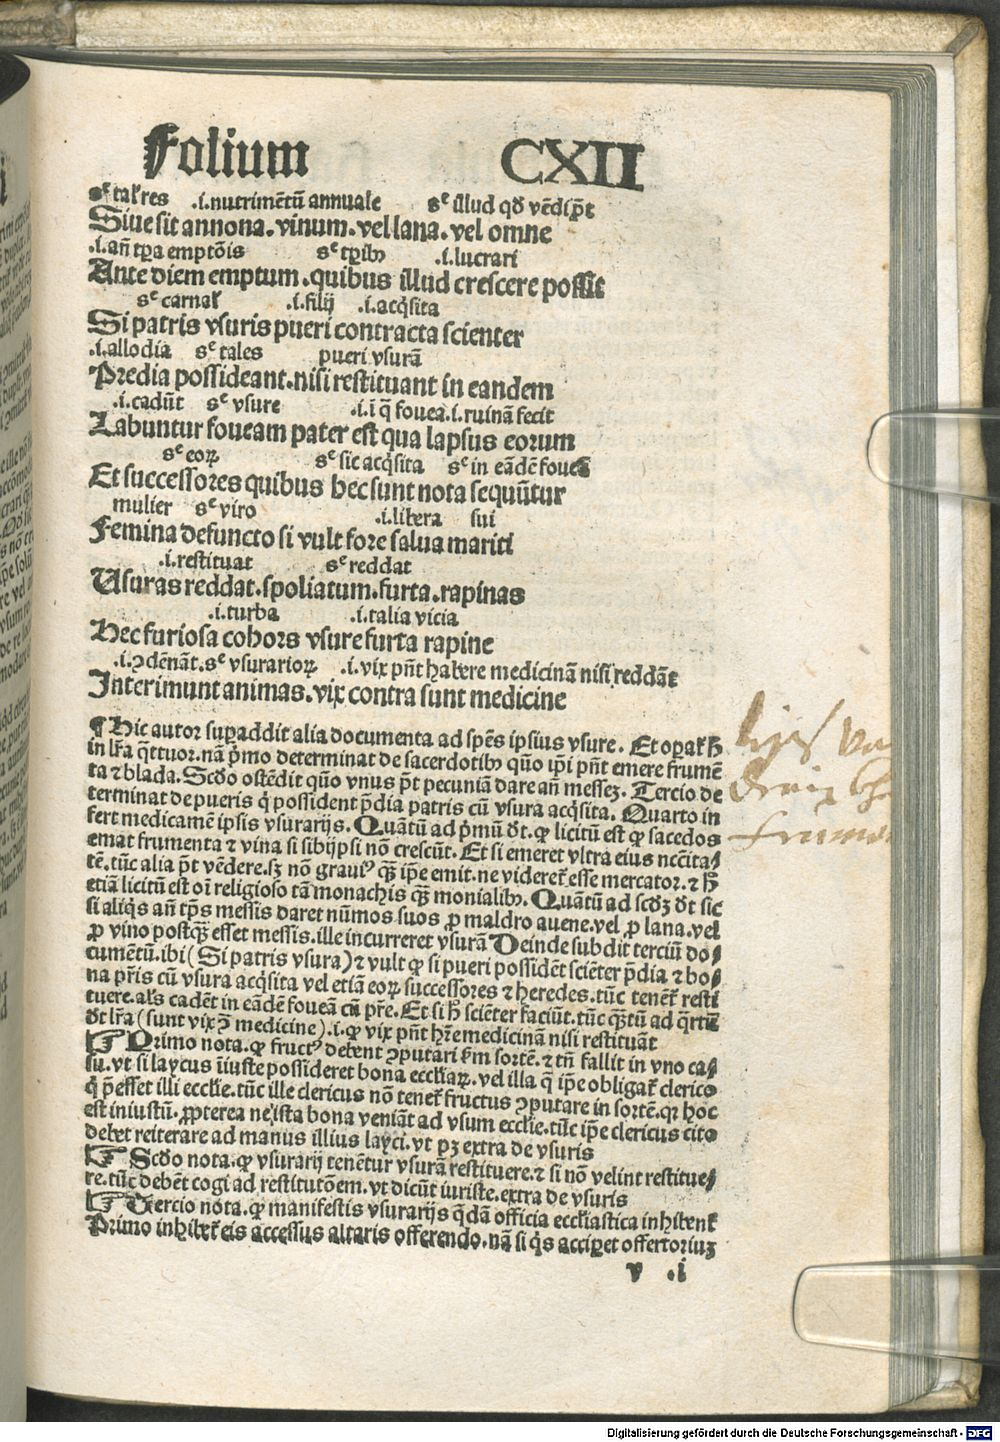 Folium CXII
sꝫ tal'res .i.nutrimētū annuale sꝫ illud qđ vēdip̄t
Siue sit annona.vinum.vel lana.vel omne
.i.an̄ tp̄a emptōis sꝫ tp̄ibꝰ .i.lucrari
Ante diem emptum.quibus illud crescere possit
sꝫ carnal' .i.filij .i.acq̄sita
Si patris vsuris pueri contracta scienter
.i.allodia sꝫ tales pueri vsurā
Predia possideant.nisi restituant in eandem
.i.cadūt sꝫ vsure .i.ī q̄ fouea.i.ruinā fecit
Labuntur foueam pater est qua lapsus eorum
sꝫ eoꝝ sꝫ sic acq̄sita sꝫ in eādē fouea
Et successores quibus hec sunt nota sequūtur
mulier sꝫ viro .i.libera sui
Femina defuncto si vult fore salua mariti
.i.restituat sꝫ reddat
Usuras reddat.spoliatum.furta.rapinas
.i.turba .i.talia vicia
Hec furiosa cohors vsure furta rapine
.i.ꝯdēnāt.sꝫ vsurarioꝝ .i.vix pn̄t habere medicinā nisi reddāt
Interimunt animas.vix contra sunt medicine
¶ Hic autor suꝑaddit alia documenta ad spēs ipsius vsure. Et oꝑat' h̄
in lr̄a q̄ttuor.nā p̄mo determinat de sacerdotibꝰ quō ip̄i pn̄t emere frumē
ta ⁊ blada. Scd̄o ostēdit quō vnus p̄t pecuniā dare an̄ messeꝫ. Tercio de
terminat de pueris q̇ possidēnt p̄dia patris cū vsura acq̄sita. Quarto in
fert medicamē ipsis vsurarijs. Quātū ad p̄mū d̄t. ꝙ licitū est ꝙ sacedos
emat frumenta ⁊ vina si sibijpsi nō crescūt. Et si emeret vltra eius nc̄cita⸗
tē.tūc alia p̄t vēdere.sꝫ nō grauiꝰ q̄ꝫ ip̄e emit.ne videret' esse mercator.⁊ h̄
etiā licitū est oī religioso tā monachis q̄ꝫ monialibꝰ. Quātū ad scd̄ꝫ d̄t sic
si aliq̇s an̄ tp̄s messis daret nūmos suos ꝓ maldro auene.vel ꝓ lana.vel
ꝓ vino postq̄ꝫ esset messis.ille incurreret vsurā Deinde subdit terciū do⸗
cumētū.ibi (Si patris vsura) ⁊ vult ꝙ si pueri possidēt sciēter p̄dia ⁊ bo⸗
na pr̄is cū vsura acq̄sita vel etiā eoꝝ successores ⁊ heredes.tūc tenēt' resti
tuere.al's cadēt in eādē foueā cū pr̄e. Et si h̄ sciēter faciūt.tūc q̄ꝫtū ad q̄rtū
d̄t lr̄a (sunt vix ꝯ̄ medicine).i.ꝙ vix pn̄t hr̄e medicinā nisi restituāt
☞ Primo nota.ꝙ fructꝰ debent ꝯputari f̄m sortē.⁊ tn̄ fallit in vno ca⸗
su.vt si laycus īiuste possideret bona eccl̄iaꝝ.vel illa q̄ ip̄e obligat' clerico
q̇ p̄esset illi eccl̄ie.tūc ille clericus nō tenet' fructus ꝯputare in sortē.qꝛ hoc
est iniustū. ꝓpterea ne ista bona veniāt ad vsum eccl̄ie.tūc ip̄e clericus cito
debet reiterare ad manus illius layci.vt pꝫ extra de vsuris
☞ Scd̄o nota.ꝙ vsurarij tenētur vsurā restituere.⁊ si nō velint restitue⸗
re.tūc debēt cogi ad restitutōem.vt dicūt iuriste.extra de vsuris
☞ Tercio nota.ꝙ manifestis vsurarijs q̄dā officia eccl̄iastica inhibent'
Primo inhibet' eis accessus altaris offerendo.nā si q̇s acciꝑet offertoriuꝫ
v .i
Digitalisierung gefördert durch die Deutsche Forschungsgemeinschaft - DFG